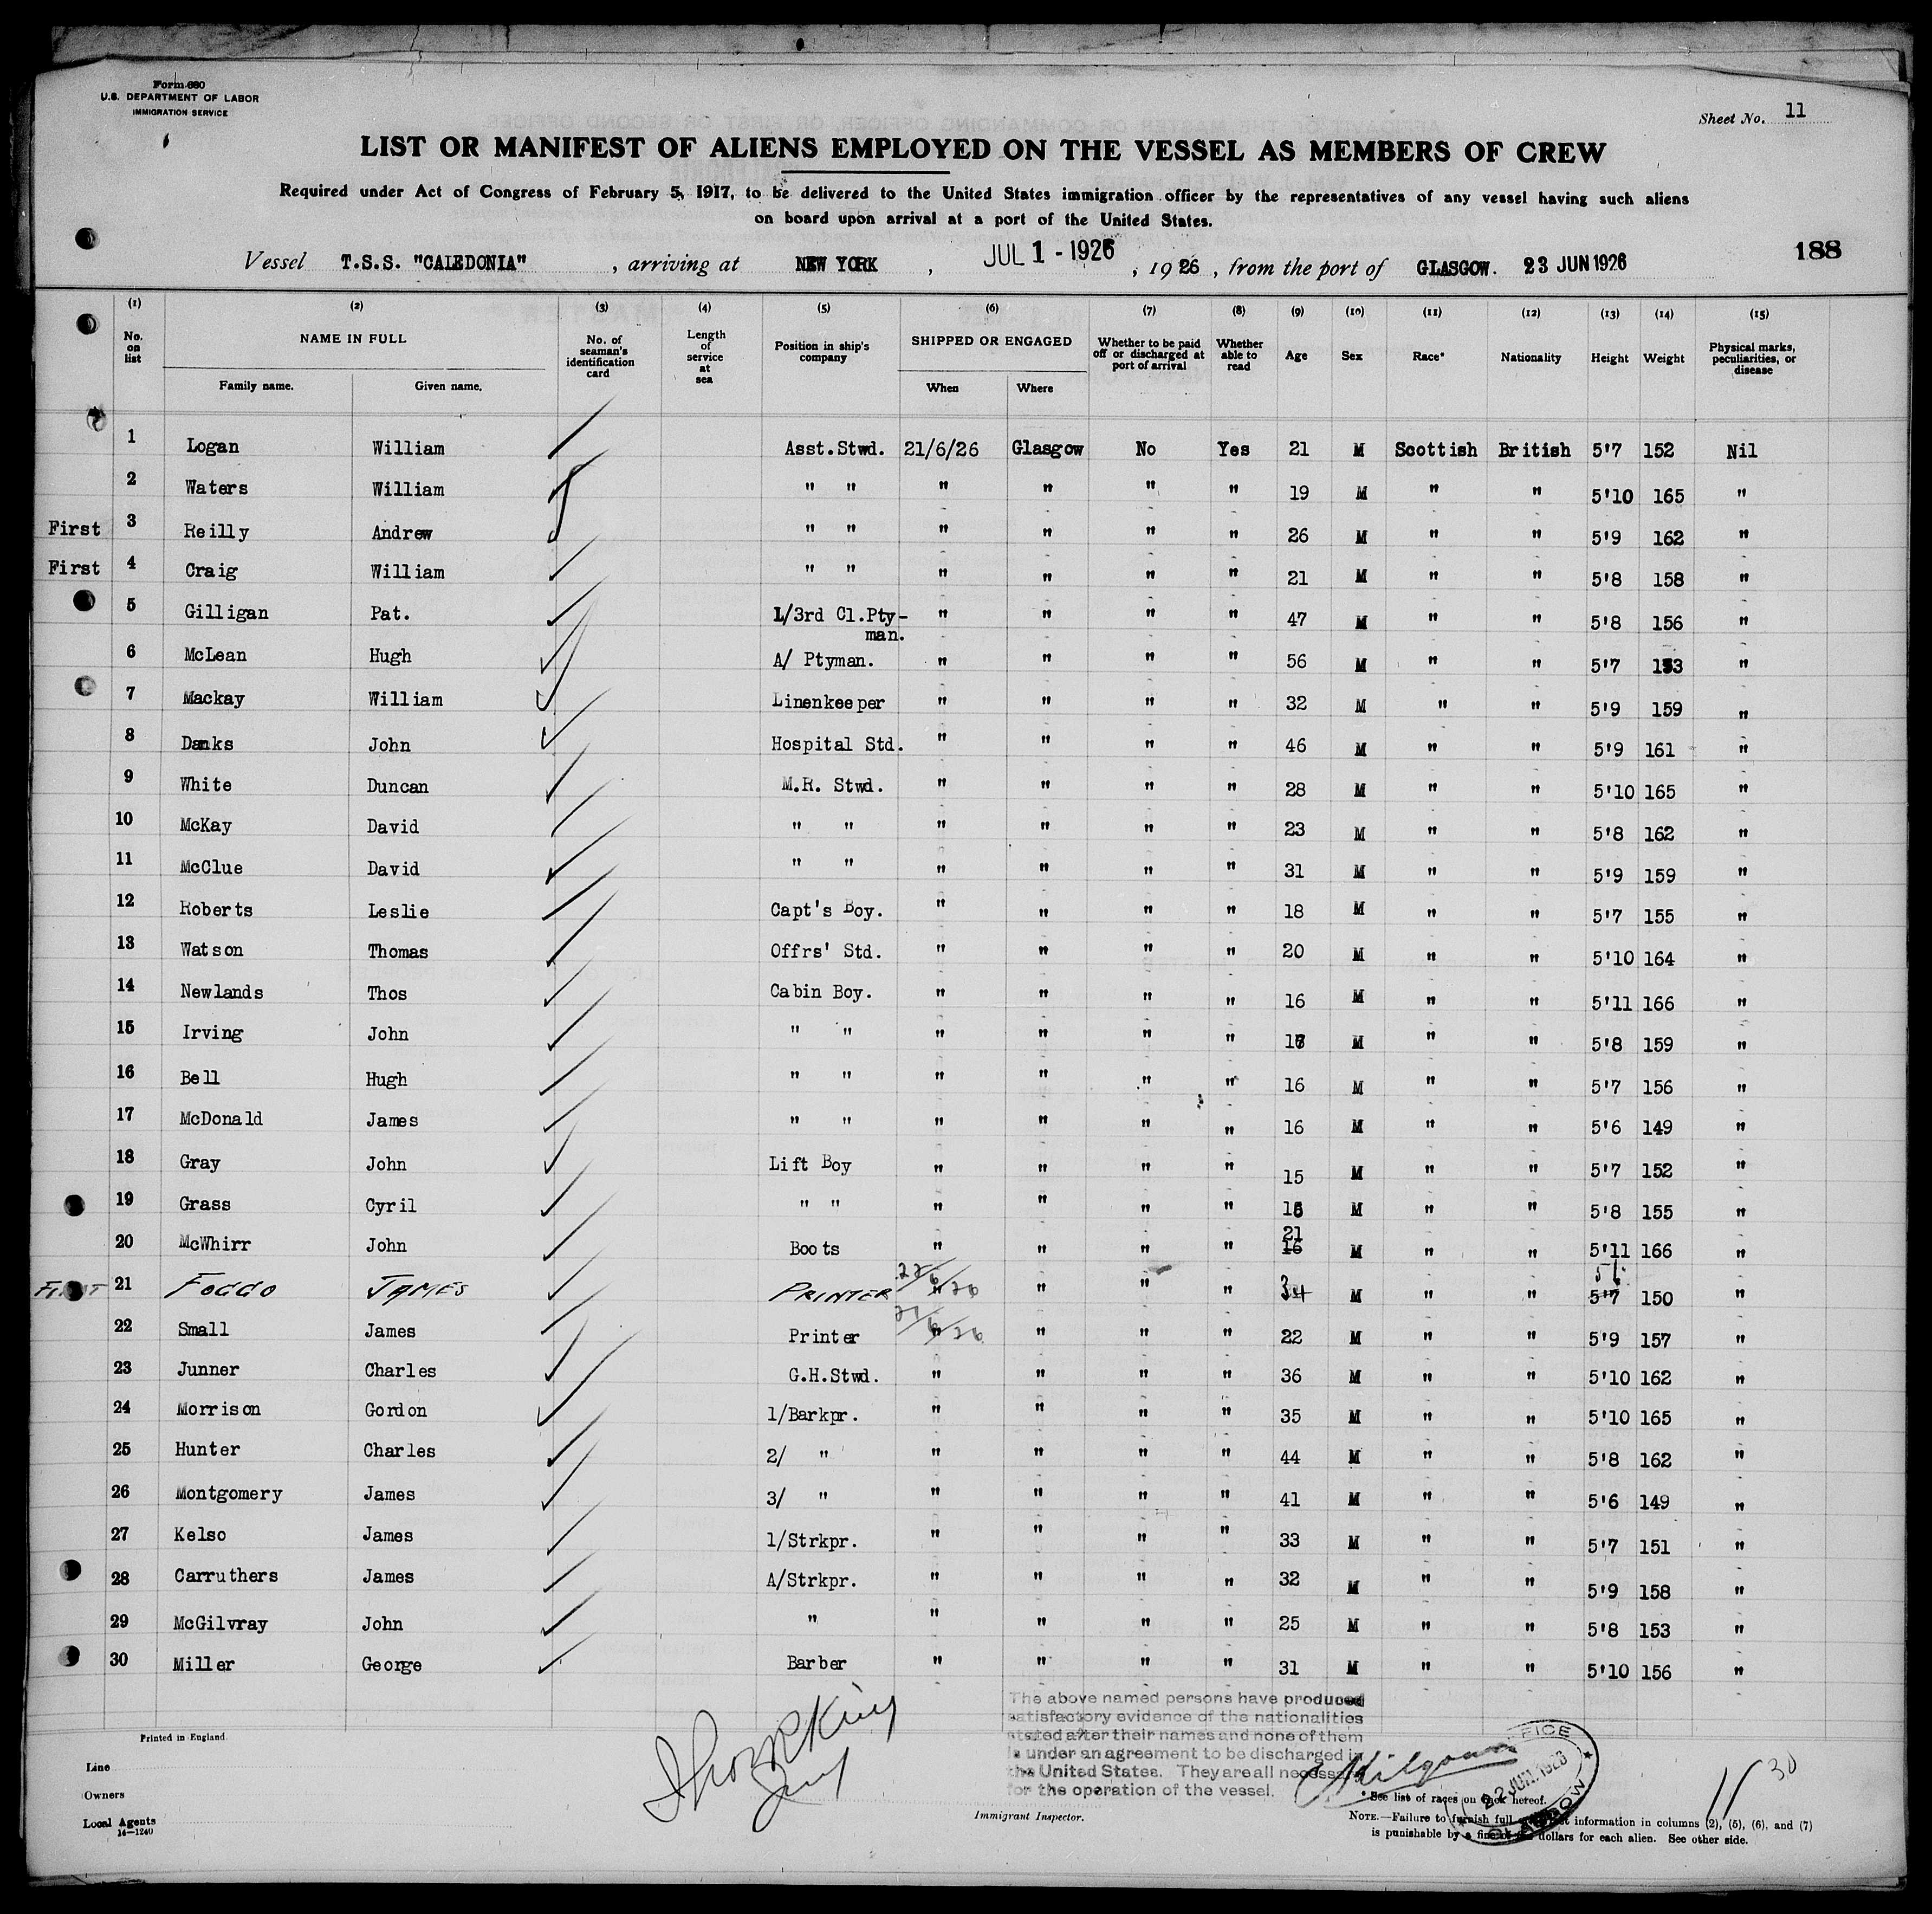 Form 680
U.S. DEPARTMENT OF LABOR
IMMIGRATION SERVICE
Sheet No. 11
LIST OR MANIFEST OF ALIENS EMPLOYED ON THE VESSEL AS MEMBERS OF CREW
Required under Act of Congress of February 5, 1917, to be delivered to the United States immigration officer by the representatives of any vessel having such aliens
on board upon arrival at a port of the United States.
Vessel T.S.S. "CALEDONIA", arriving at NEW YORK, JUL 1 - 1926, 1926, from the port of GLASGOW. 23 JUN 1926 188
(1) (2) (3) (4) (5) (6) (7) (8) (9) (10) (11) (12) (13) (14) (15)
No. on list NAME IN FULL Family name. Given name. No. of seaman's identification card Length of service at sea Position in ship's company SHIPPED OR ENGAGED When Where Whether to be paid off or discharged at port of arrival Whether able to read Age Sex Race* Nationality Height Weight Physical marks, peculiarities, or disease
1 Logan William Asst.Stwd. 21/6/26 Glasgow No Yes 21 M Scottish British 5'7 152 Nil
2 Waters William " " " " " " 19 M " " 5'10 165 "
First 3 Reilly Andrew " " " " " " 26 M " " 5'9 162 "
First 4 Craig William " " " " " " 21 M " " 5'8 158 "
5 Gilligan Pat. 1/3rd Cl.Pty-man. " " " " 47 M " " 5'8 156 "
6 McLean Hugh A/ Ptyman. " " " " 56 M " " 5'7 153 "
7 Mackay William Linenkeeper " " " " 32 M " " 5'9 159 "
8 Danks John Hospital Std. " " " " 46 M " " 5'9 161 "
9 White Duncan M.R. Stwd. " " " " 28 M " " 5'10 165 "
10 McKay David " " " " " " 23 M " " 5'8 162 "
11 McClue David " " " " " " 31 M " " 5'9 159 "
12 Roberts Leslie Capt's Boy. " " " " 18 M " " 5'7 155 "
13 Watson Thomas Offrs' Std. " " " " 20 M " " 5'10 164 "
14 Newlands Thos Cabin Boy. " " " " 16 M " " 5'11 166 "
15 Irving John " " " " " " M " " 5'8 159 "
16 Bell Hugh " " " " " " 16 M " " 5'7 156 "
17 McDonald James " " " " " " 16 M " " 5'6 149 "
18 Gray John Lift Boy " " " " 15 M " " 5'7 152 "
19 Grass Cyril " " " " " " M " " 5'8 155 "
20 McWhirr John Boots " " " " 21 16 M " " 5'11 166 "
First 21 Foggo James Printer 22/6/26 " " " 34 M " " 5'7 150 "
22 Small James Printer 21/6/26 " " " 22 M " " 5'9 157 "
23 Junner Charles G.H.Stwd. " " " " 36 M " " 5'10 162 "
24 Morrison Gordon 1/Barkpr. " " " " 35 M " " 5'10 165 "
25 Hunter Charles 2/ " " " " " 44 M " " 5'8 162 "
26 Montgomery James 3/ " " " " " 41 M " " 5'6 149 "
27 Kelso James 1/Strkpr. " " " " 33 M " " 5'7 151 "
28 Carruthers James A/Strkpr. " " " " 32 M " " 5'9 158 "
29 McGilvray John " " " " " 25 M " " 5'8 153 "
30 Miller George Barber " " " " 31 M " " 5'10 156 "
The above named persons have produced
satisfactory evidence of the nationalities
stated after their names and none of them
is under an agreement to be discharged in
the United States. They are all necessary
for the operation of the vessel.
Printed in England
Line
Owners
Local Agents
14-1240
Immigrant Inspector.
22 JUN. 1926
30
* See list of races on back hereof.
NOTE.—Failure to furnish full information in columns (2), (5), (6), and (7)
is punishable by a fine of dollars for each alien. See other side.